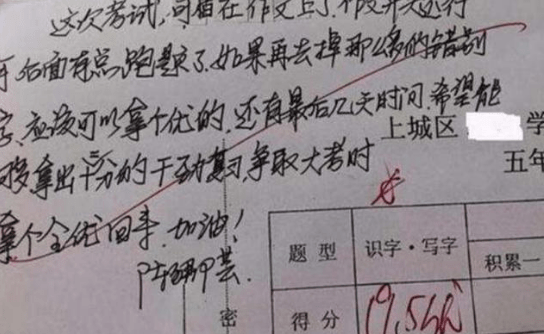 这次考试,可惜在作文上了,不
后面有点跑题了.如果再去掉那么多的错别
字,应该可以拿个优的.还有最后几天时间,希望能
够拿出十分的干劲复习,争取大考时
拿个全优回来.加油!
上城区 学
五年
题 型 识字·写字
积累一
密 得 分 19.5